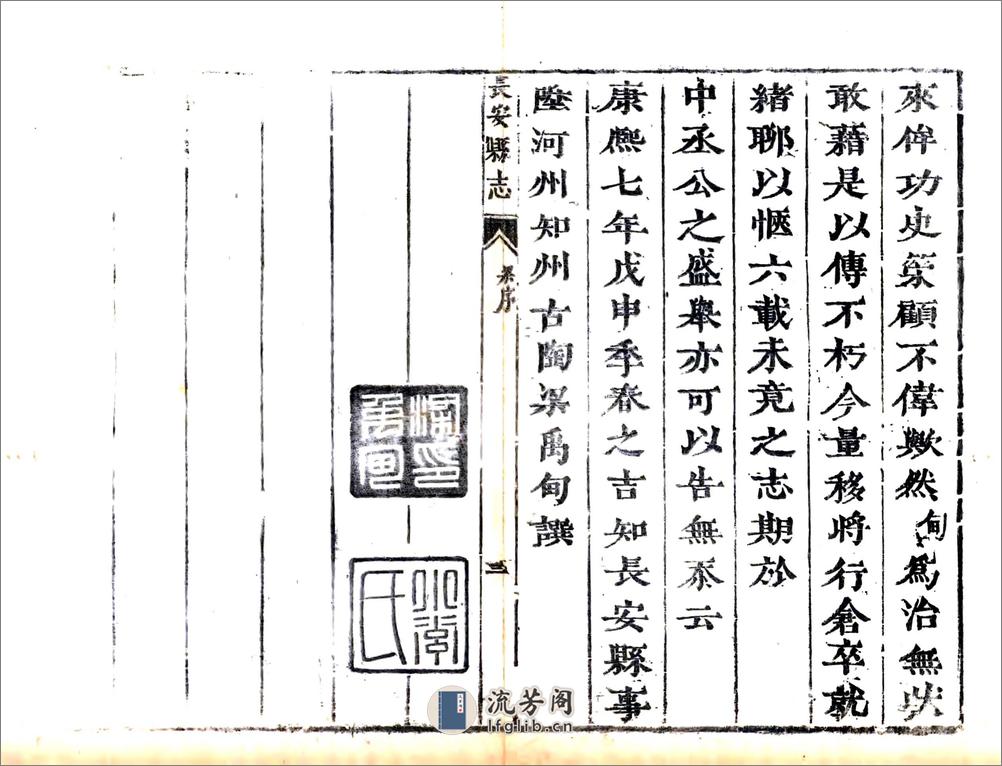 來侔功史策顧不偉歟然甸為治無状
敢藉是以傳不朽今量移將行倉卒就
緒聊以愜六載未竟之志期於
中丞公之盛舉亦可以告無忝云
康熙七年戊申季春之吉知長安縣事
陞河州知州古陶梁禹甸譔
長安縣志
梁序
三
流芳阁
lfglib.cn